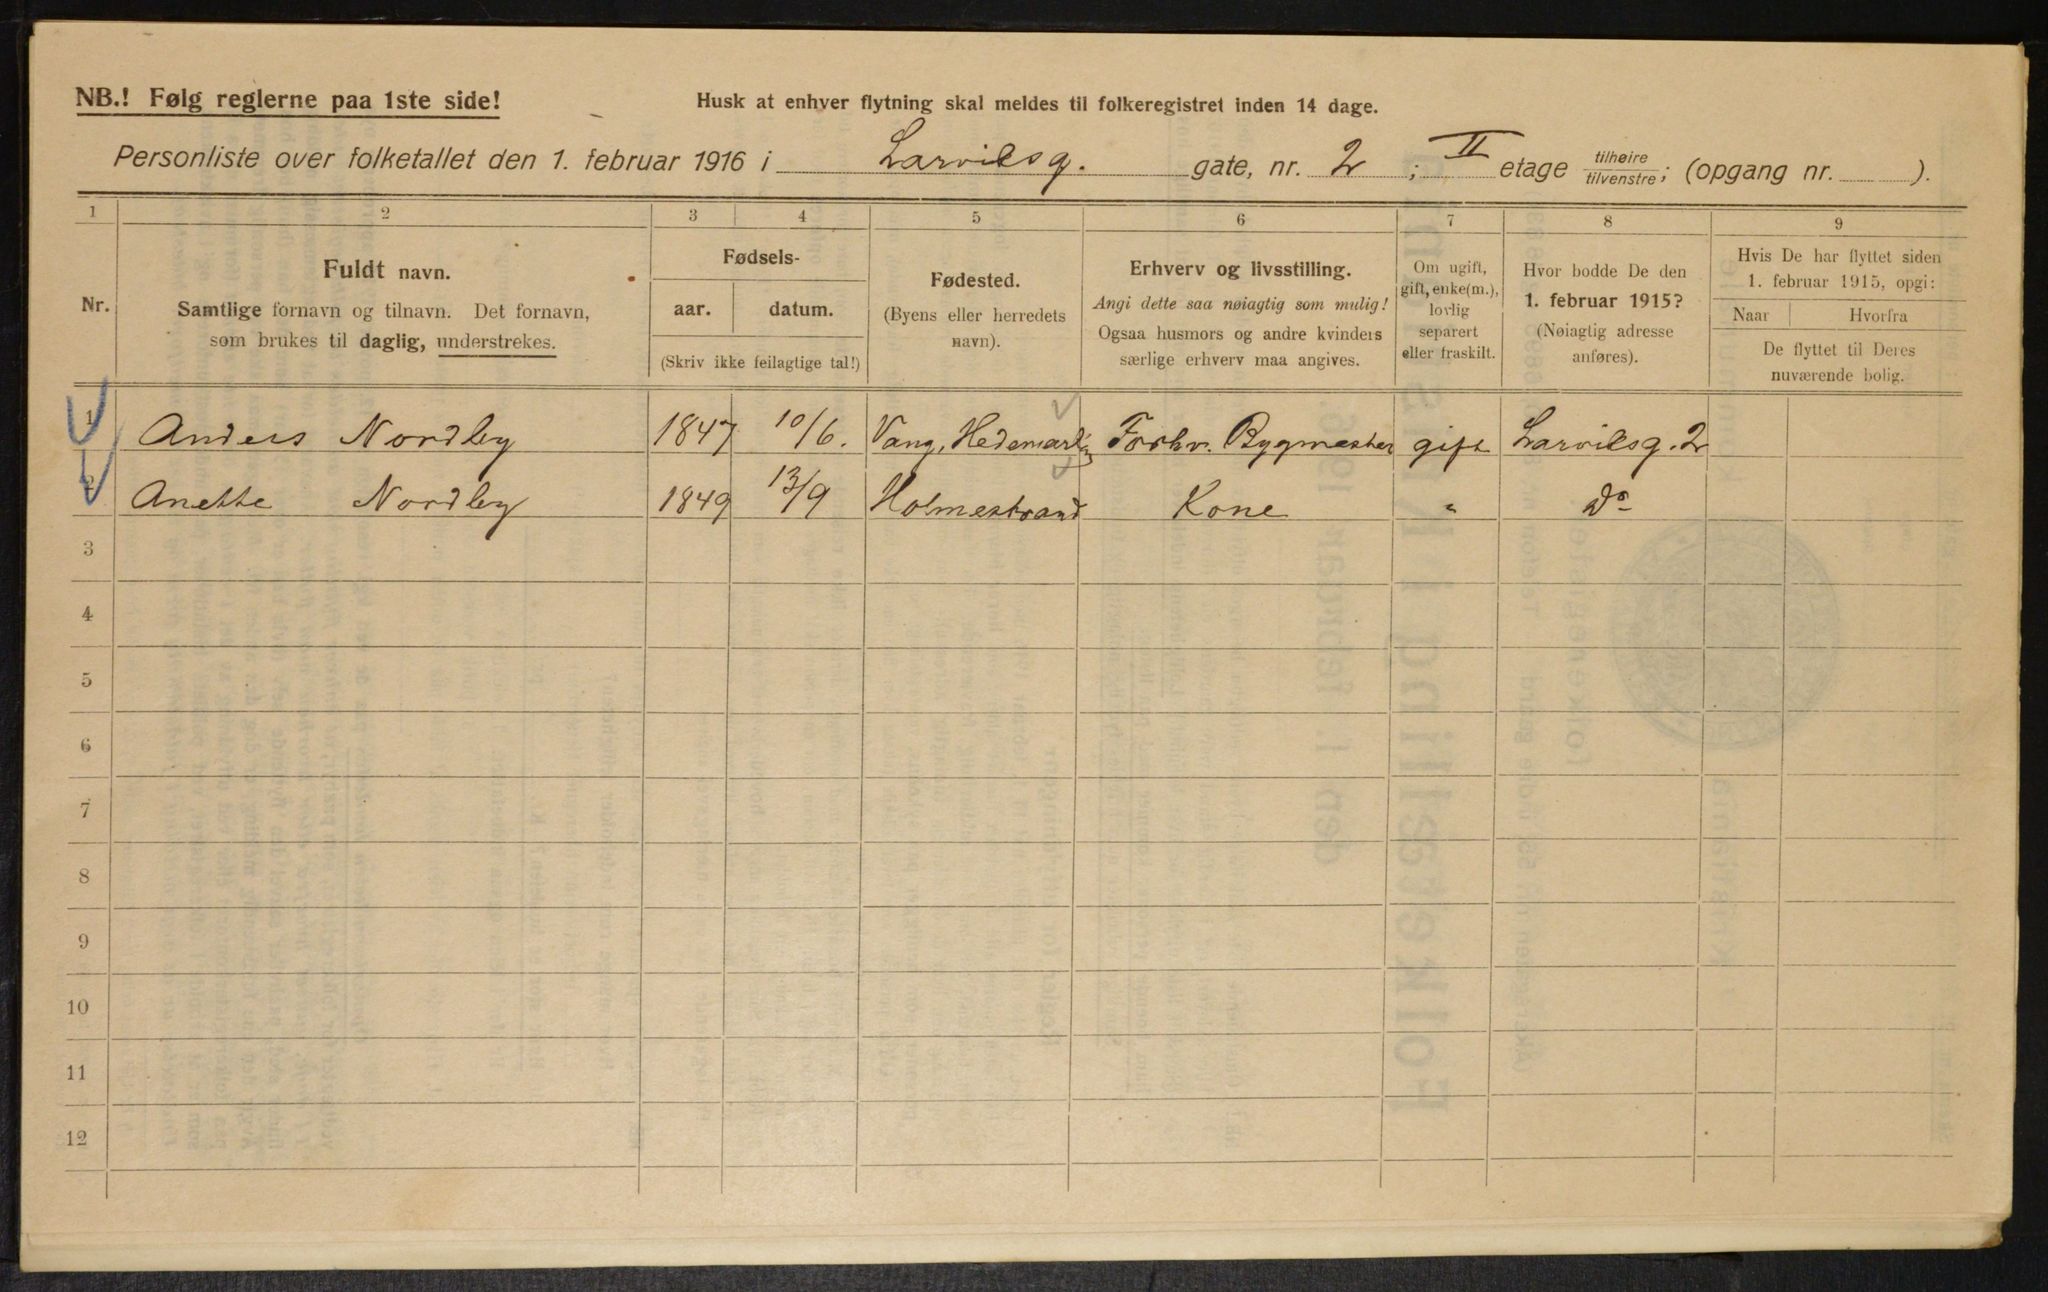 NB.! Følg reglerne paa 1ste side!
Husk at enhver flytning skal meldes til folkeregistret inden 14 dage.
Personliste over folketallet den 1. februar 1916 i Larviksg. gate, nr. 2 ; II etage tilhøire/tilvenstre; (opgang nr. ).
1 2 3 4 5 6 7 8 9
Nr.
Fuldt navn.
Samtlige fornavn og tilnavn. Det fornavn,
som brukes til daglig, understrekes.
Fødsels-
aar. datum.
(Skriv ikke feilagtige tal!)
Fødested.
(Byens eller herredets
navn).
Erhverv og livsstilling.
Angi dette saa nøiagtig som mulig!
Ogsaa husmors og andre kvinders
særlige erhverv maa angives.
Om ugift,
gift, enke(m.),
lovlig
separert
eller fraskilt.
Hvor bodde De den
1. februar 1915?
(Nøiagtig adresse
anføres).
Hvis De har flyttet siden
1. februar 1915, opgi:
Naar Hvorfra
De flyttet til Deres
nuværende bolig.
1 Anders Nordby 1847 10/6. Vang, Hedemarken Forhv. Bygmester gift Larviksg. 2
2 Anette Nordby 1849 13/9 Holmestrand Kone " Do
3
4
5
6
7
8
9
10
11
12